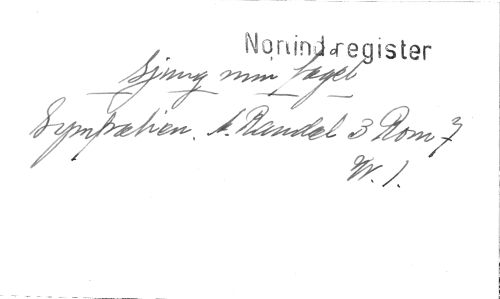 Norlind register
Sjung min fågel
Sympatien. A. Randel 3 Rom 7
W. 1.